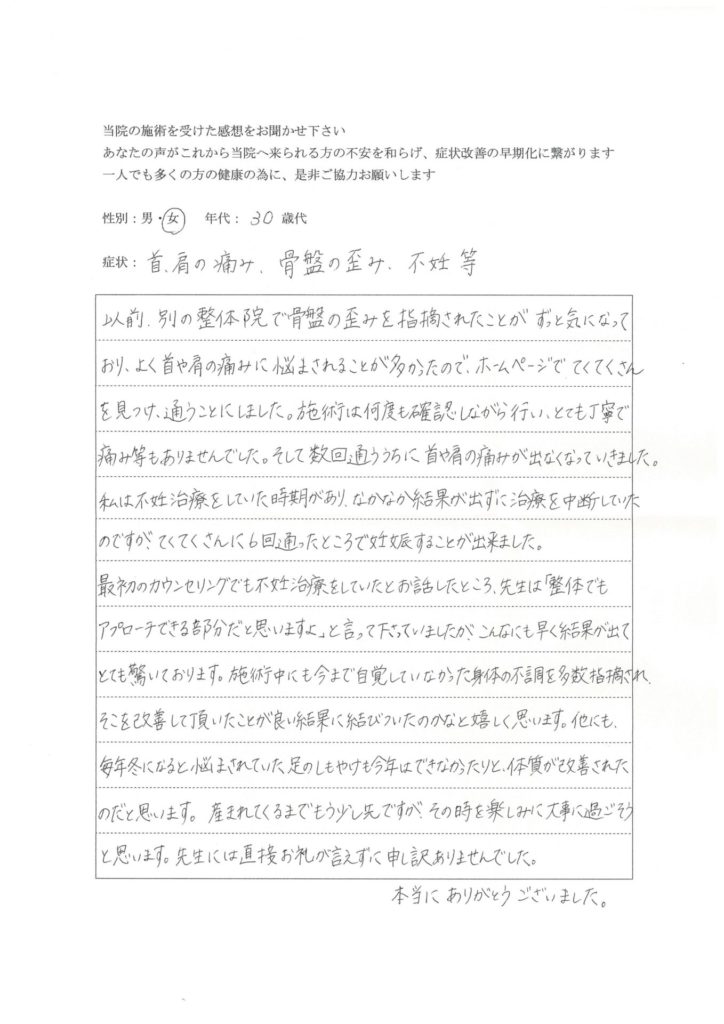 当院の施術を受けた感想をお聞かせ下さい
あなたの声がこれから当院へ来られる方の不安を和らげ、症状改善の早期化に繋がります
一人でも多くの方の健康の為に、是非ご協力お願いします
性別：男・女　年代：30歳代
症状：首、肩の痛み、骨盤の歪み、不妊等
以前、別の整体院で骨盤の歪みを指摘されたことがずっと気になって
おり、よく首や肩の痛みに悩まされることが多かったので、ホームページでてくてくさん
を見つけ、通うことにしました。施術は何度も確認しながら行い、とても丁寧で
痛み等もありませんでした。そして数回通ううちに首や肩の痛みが出なくなっていきました。
私は不妊治療をしていた時期があり、なかなか結果が出ずに治療を中断していた
のですが、てくてくさんに6回通ったところで妊娠することが出来ました。
最初のカウンセリングでも不妊治療をしていたとお話したところ、先生は「整体でも
アプローチできる部分だと思いますよ」と言って下さっていましたが、こんなにも早く結果が出て
とても驚いております。施術中にも今まで自覚していなかった身体の不調を多数指摘され、
そこを改善して頂いたことが良い結果に結びついたのかなと嬉しく思います。他にも、
毎年冬になると悩まされていた足のしもやけも今年はできなかったりと、体質が改善された
のだと思います。産まれてくるまでもう少し先ですが、その時を楽しみに大事に過ごそう
と思います。先生には直接お礼が言えずに申し訳ありませんでした。
本当にありがとうございました。